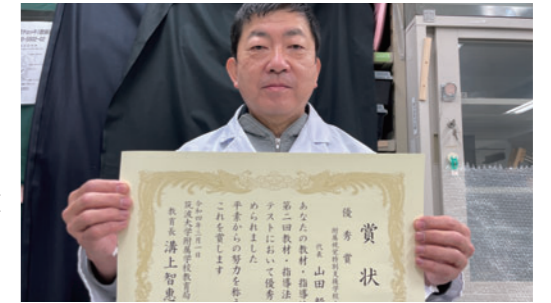 賞状
優秀賞
附属視覚特別支援学校
代表 山田
あなたの教材・指導法
第二回教材・指導法
テストにおいて優秀
められました
平素からの努力を称え
これを賞します
令和四年三月一日
筑波大学附属学校教育局
教育長 溝上智恵